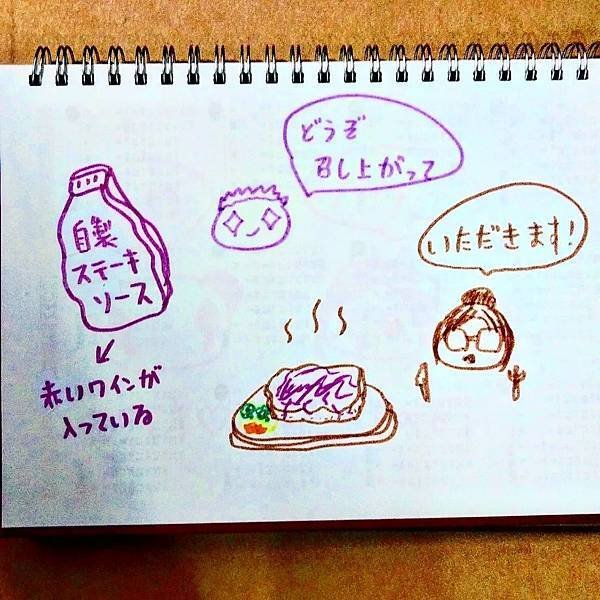 どうぞ
召し上がって
自製
ステーキ
ソース
赤いワインが
入っている
いただきます!